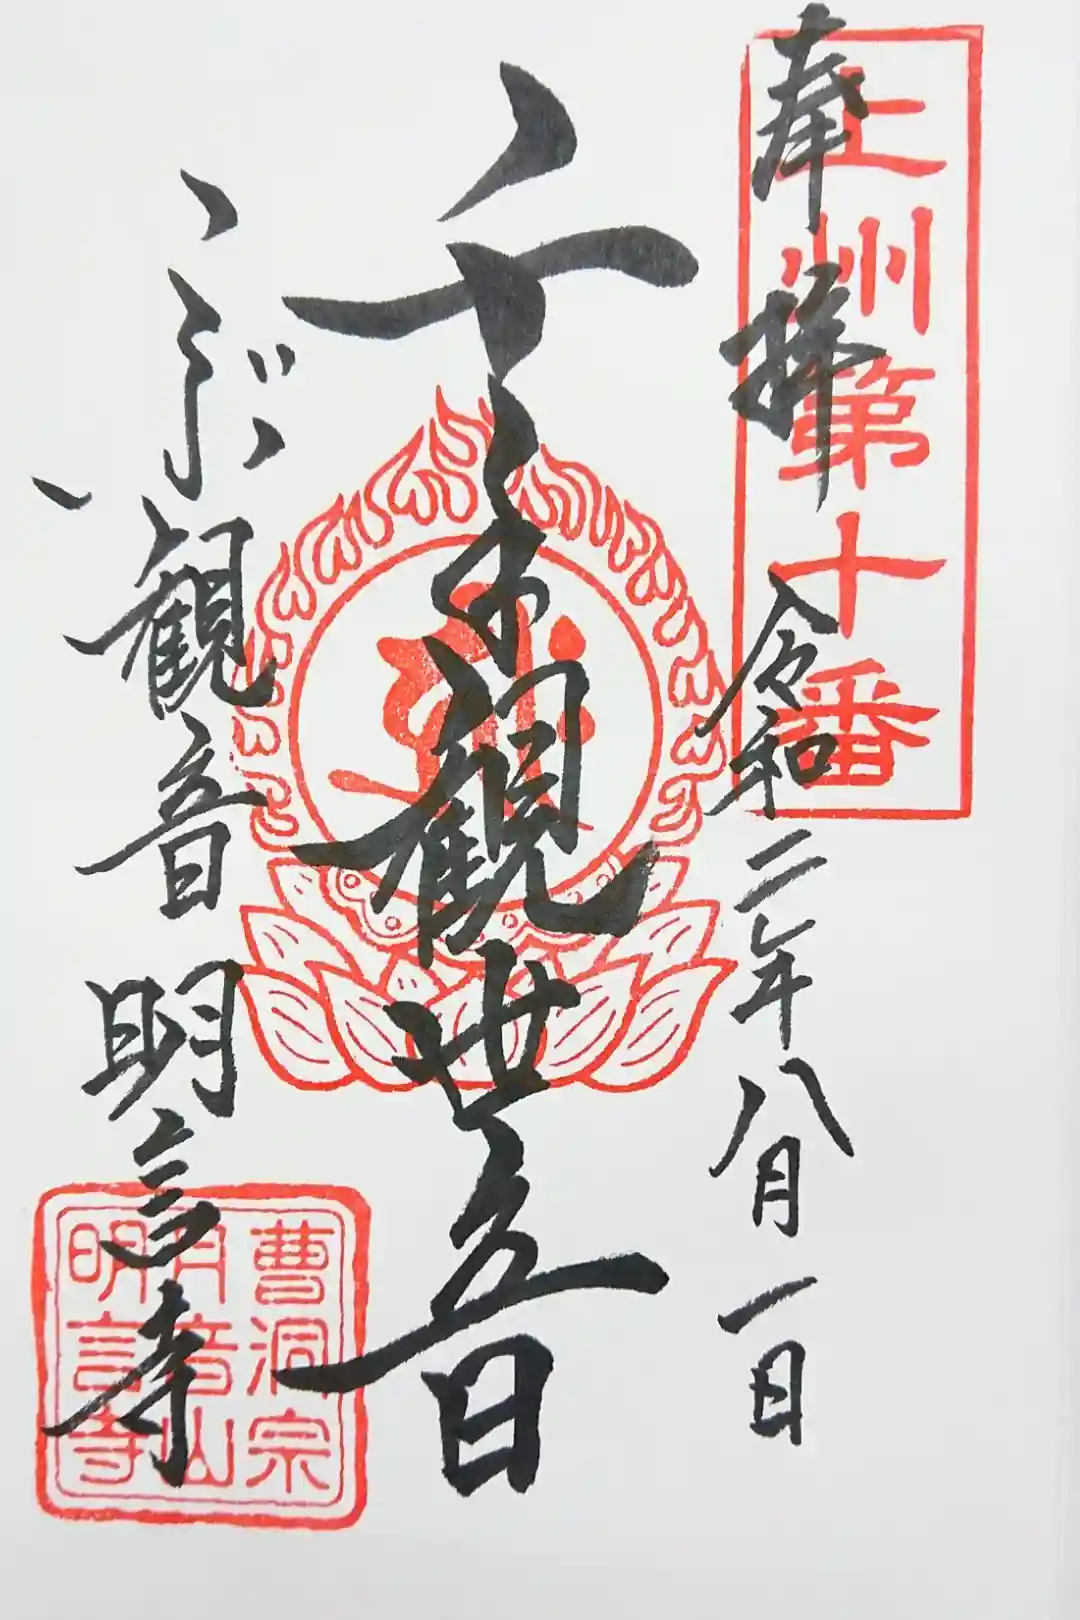 上州第十番
奉拝 令和二年八月一日
千手観世音
こぶ観音 明言寺
曹洞宗
月音山
明言寺